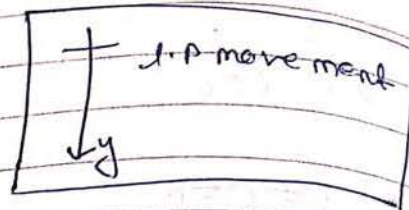 1.p movement
y